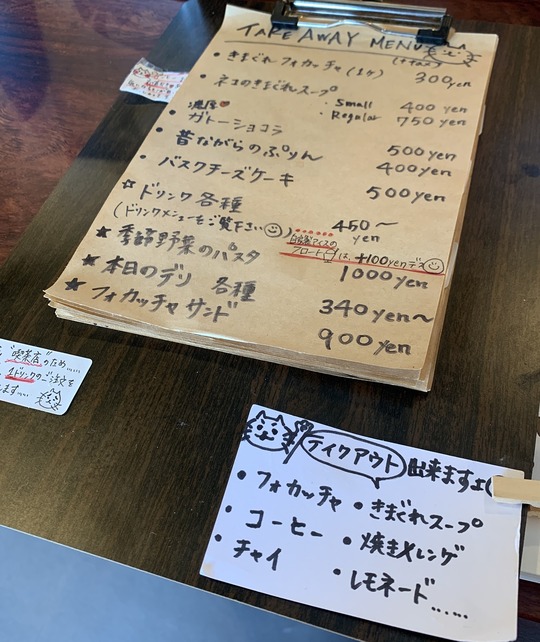 TAKE AWAY MENU
(+tax)
・きまぐれフォカッチャ(1ヶ) 300yen
・ネコのきまぐれスープ
・Small 400yen
・Regular 750yen
濃厚
・ガトーショコラ 500yen
・昔ながらのぷりん 400yen
・バスクチーズケーキ 500yen
☆ドリンク各種 450〜yen
(ドリンクメニューをご覧下さい)
自家製アイスの
フロートは、+100yenデス
★季節野菜のパスタ 1000yen
★本日のデリ 各種 340yen〜
★フォカッチャサンド 900yen
"喫茶店"のため.....
1ドリンクのご注文を
ます....
テイクアウト 出来ますよ
・フォカッチャ ・きまぐれスープ
・コーヒー ・焼きメレンゲ
・チャイ ・レモネード......